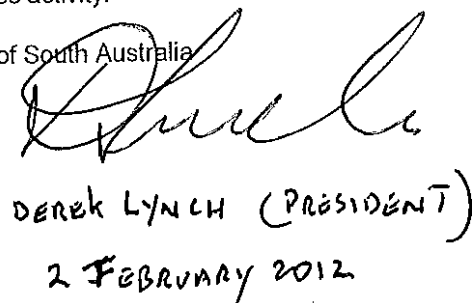 ss activity.
of South Australia
DEREK LYNCH (PRESIDENT)
2 FEBRUARY 2012